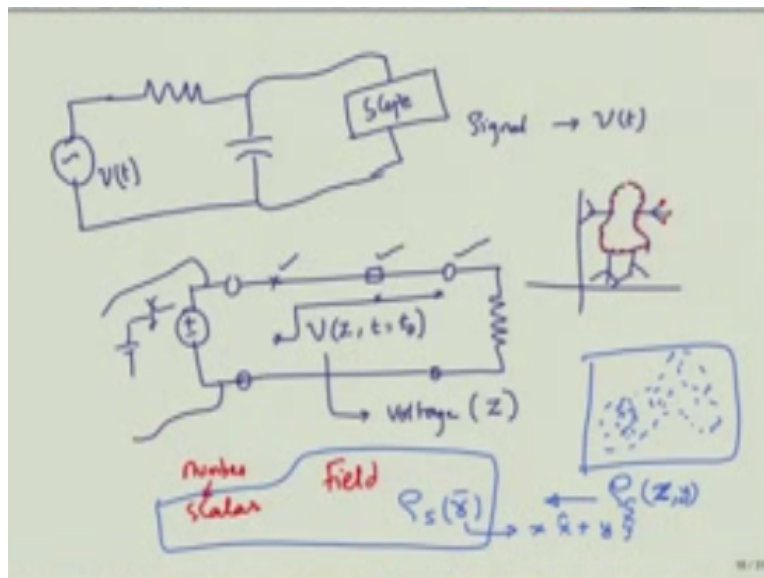 V(t)
Scope
Signal → V(t)
V(z, t = t₀)
Voltage (z)
number
scalar
Field
ρₛ(r̄)
x x̂ + y ŷ